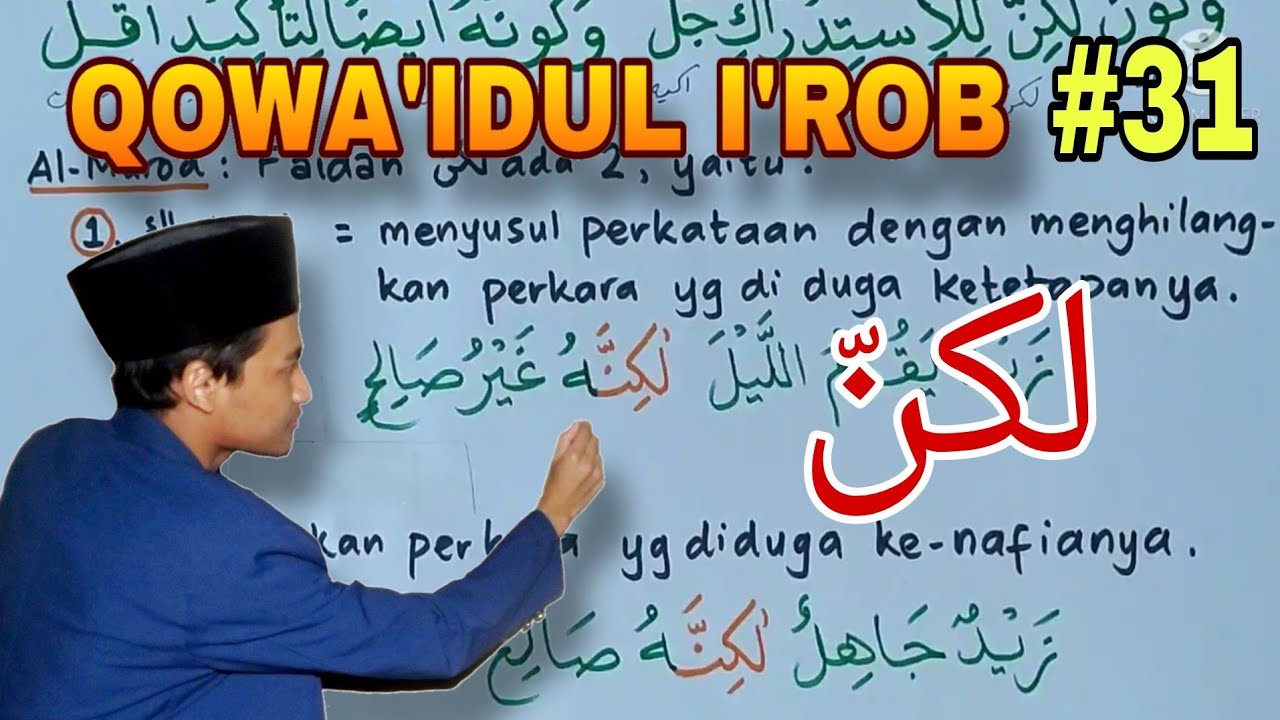 وَكَوْنُ لٰكِنَّ لِلْاِسْتِدْرَاكِ جَلّ وَكَوْنُهُ اَيْضًا لِتَأْكِيْدٍ اَقَلّ
QOWA'IDUL I'ROB #31
Al-Murod : Faidah لكن ada 2, yaitu :
1. = menyusul perkataan dengan menghilang-
kan perkara yg di duga ketetapanya.
زَيْدٌ يَقُوْمُ اللَّيْلَ لٰكِنَّهُ غَيْرُ صَالِحٍ
لكنّ
kan perkara yg diduga ke-nafianya.
زَيْدٌ جَاهِلٌ لٰكِنَّهُ صَالِحٌ